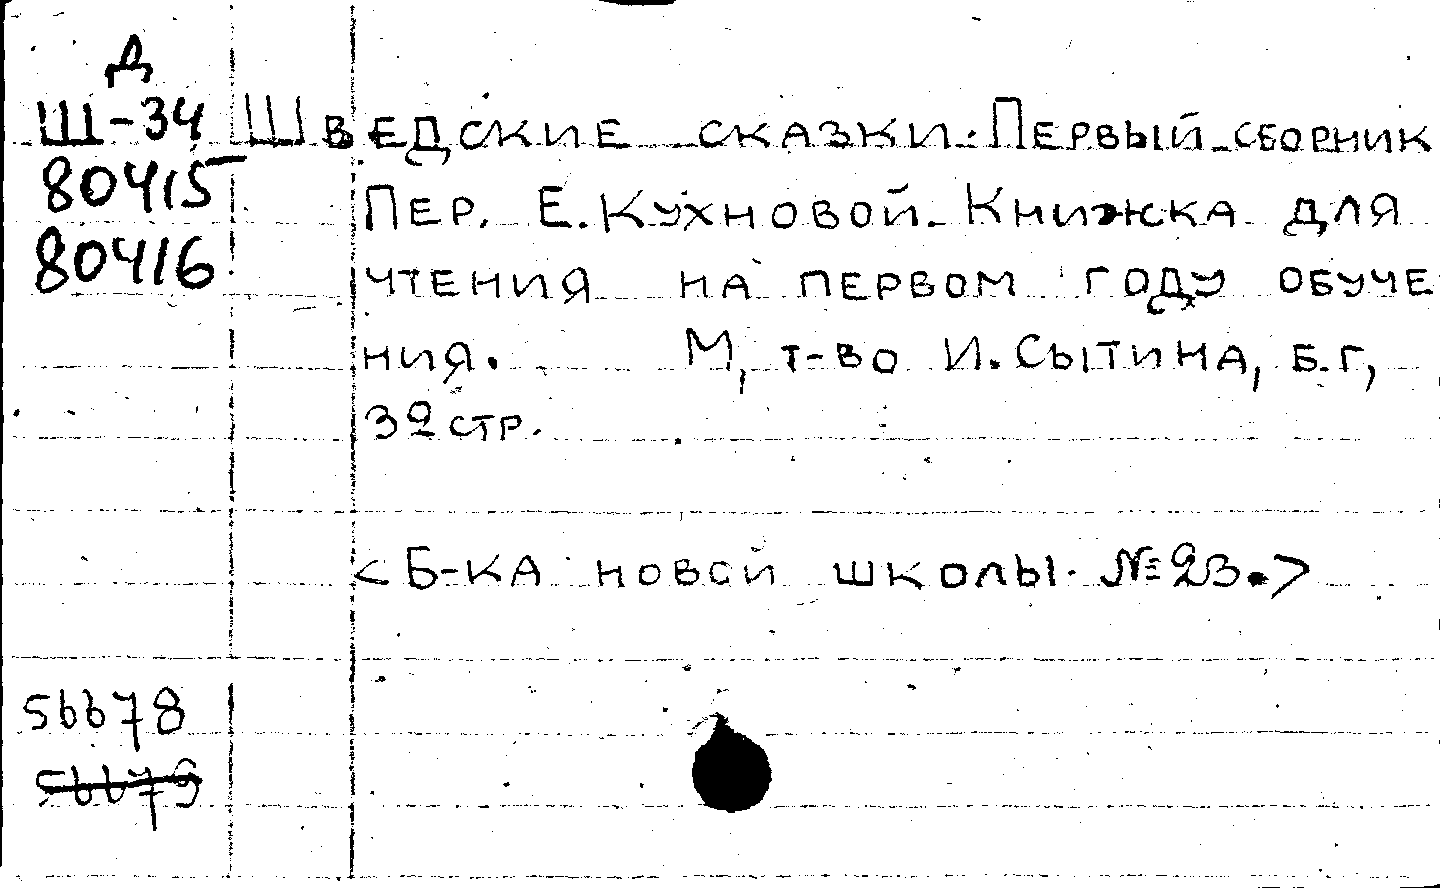 Д
Ш-34 Шведские сказки. Первый сборник
80415 Пер. Е. Кухновой. Книжка для
80416 чтения на первом году обуче
ния. М, т-во И. Сытина, б.г,
32 стр.
<Б-ка новой школы. №23.>
56678
56679